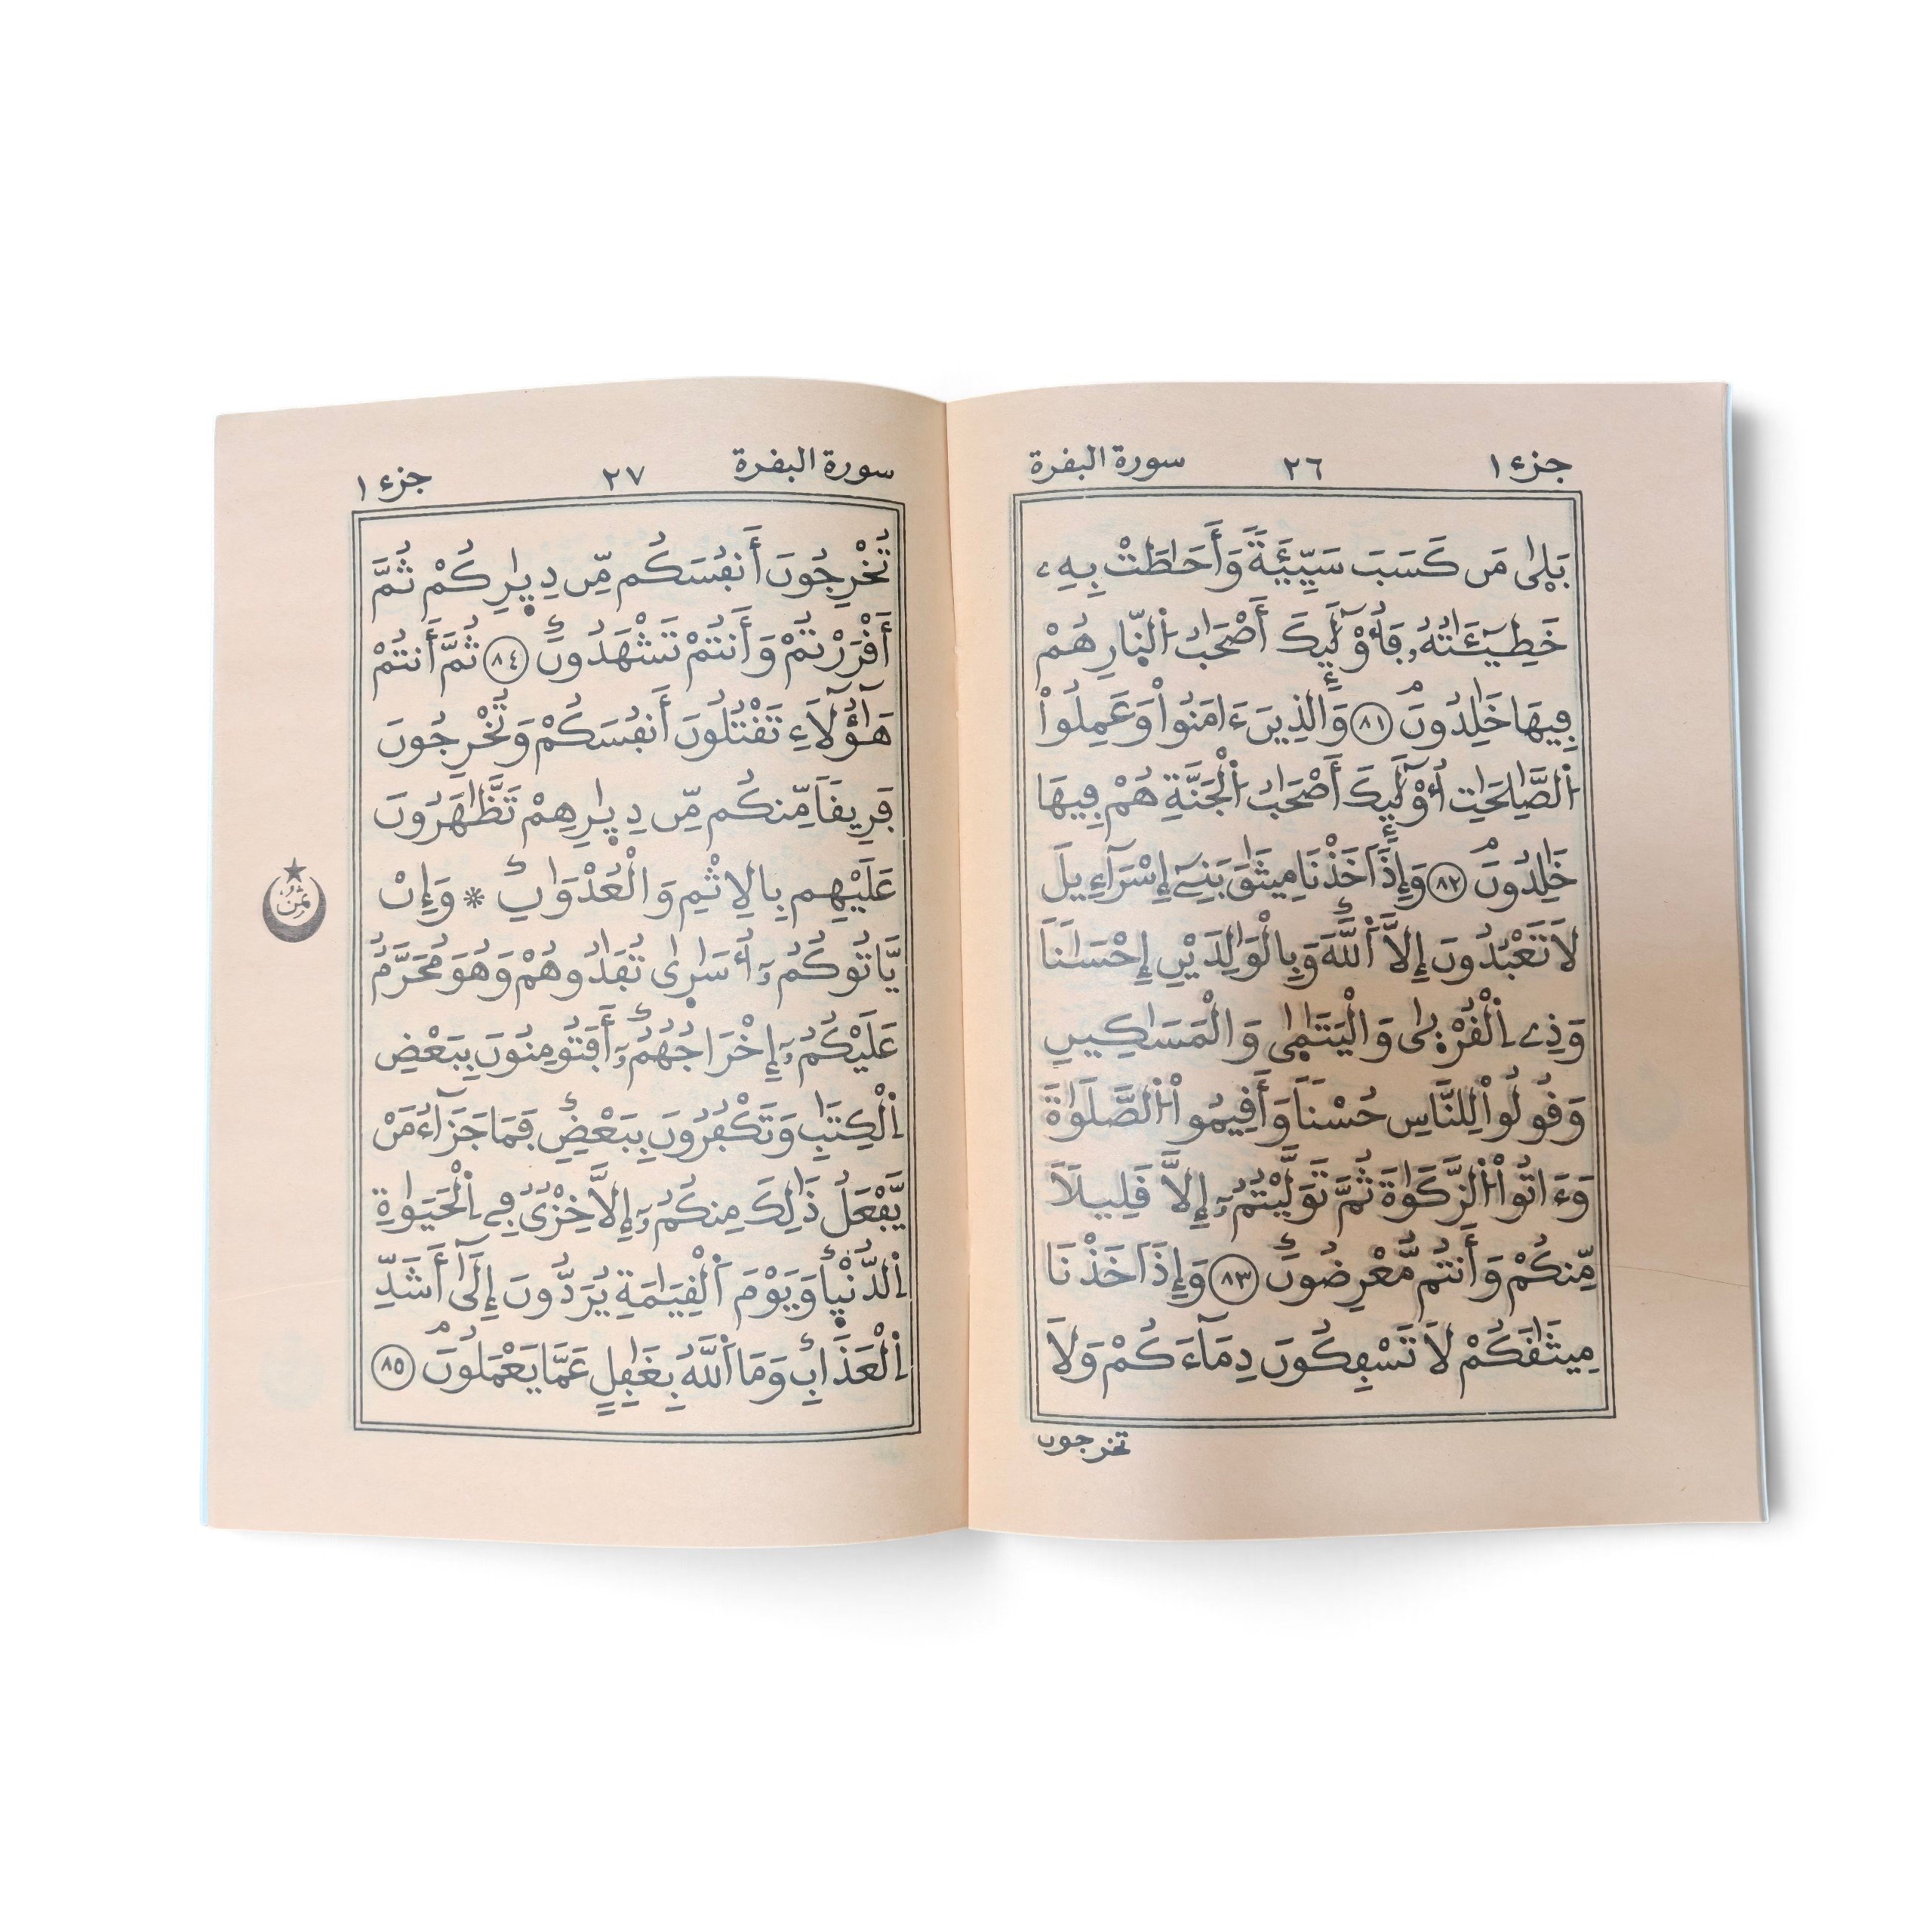 جزء ١ ٢٦ سورة البقرة
بَلٜىٰ مَن كَسَبَ سَيِّئَةً وَأَحَٰطَتْ بِهِۦ
خَطِيٓـَٰٔتُهُۥ فَأُوْلَٰٓئِكَ أَصْحَٰبُ اُ۬لنّ۪ارِ هُمْ
فِيهَا خَٰلِدُونَۖ ٨١ وَالذِينَ ءَامَنُواْ وَعَمِلُواْ
اُ۬لصَّٰلِحَٰتِ أُوْلَٰٓئِكَ أَصْحَٰبُ اُ۬لْجَنَّةِ هُمْ فِيهَا
خَٰلِدُونَۖ ٨٢ وَإِذَ اَخَذْنَا مِيثَٰقَ بَنِےٓ إِسْرَآءِيلَ
لَا تَعْبُدُونَ إِلَّا اَ۬للَّهَ وَبِالْوَٰلِدَيْنِ إِحْسَٰناً
وَذِے اِ۬لْقُرْب۪ىٰ وَالْيَتَٰم۪ىٰ وَالْمَسَٰكِينِ
وَقُولُواْ لِلنَّاسِ حُسْناً وَأَقِيمُواْ اُ۬لصَّلَوٰةَ
وَءَاتُواْ اُ۬لزَّكَوٰةَ ثُمَّ تَوَلَّيْتُمُۥٓ إِلَّا قَلِيلاً
مِّنكُمْ وَأَنتُم مُّعْرِضُونَۖ ٨٣ وَإِذَ اَخَذْنَا
مِيثَٰقَكُمْ لَا تَسْفِكُونَ دِمَآءَكُمْ وَلَا
تخرجون
سورة البقرة ٢٧ جزء ١
تُخْرِجُونَ أَنفُسَكُم مِّن دِيٰ۪رِكُمْ ثُمَّ
أَقْرَرْتُمْ وَأَنتُمْ تَشْهَدُونَۖ ٨٤ ثُمَّ أَنتُمْ
هَٰٓؤُلَآءِ تَقْتُلُونَ أَنفُسَكُمْ وَتُخْرِجُونَ
فَرِيقاً مِّنكُم مِّن دِيٰ۪رِهِمْ تَظَّٰهَرُونَ
عَلَيْهِم بِالِاثْمِ وَالْعُدْوَٰنِۖ * وَإِنْ
يَّاتُوكُمُۥٓ أُسَٰر۪ىٰ تُفَٰدُوهُمْ وَهُوَ مُحَرَّمٌ
عَلَيْكُمُۥٓ إِخْرَاجُهُمُۥٓۖ أَفَتُومِنُونَ بِبَعْضِ
اِ۬لْكِتَٰبِ وَتَكْفُرُونَ بِبَعْضٖۖ فَمَا جَزَآءُ مَنْ
يَّفْعَلُ ذَٰلِكَ مِنكُمُۥٓ إِلَّا خِزْيٌ فِے اِ۬لْحَيَوٰةِ
اِ۬لدُّنْي۪اۖ وَيَوْمَ اَ۬لْقِيَٰمَةِ يُرَدُّونَ إِلَىٰٓ أَشَدِّ
اِ۬لْعَذَابِۖ وَمَا اَ۬للَّهُ بِغَٰفِلٍ عَمَّا يَعْمَلُونَۖ ٨٥
ثمن